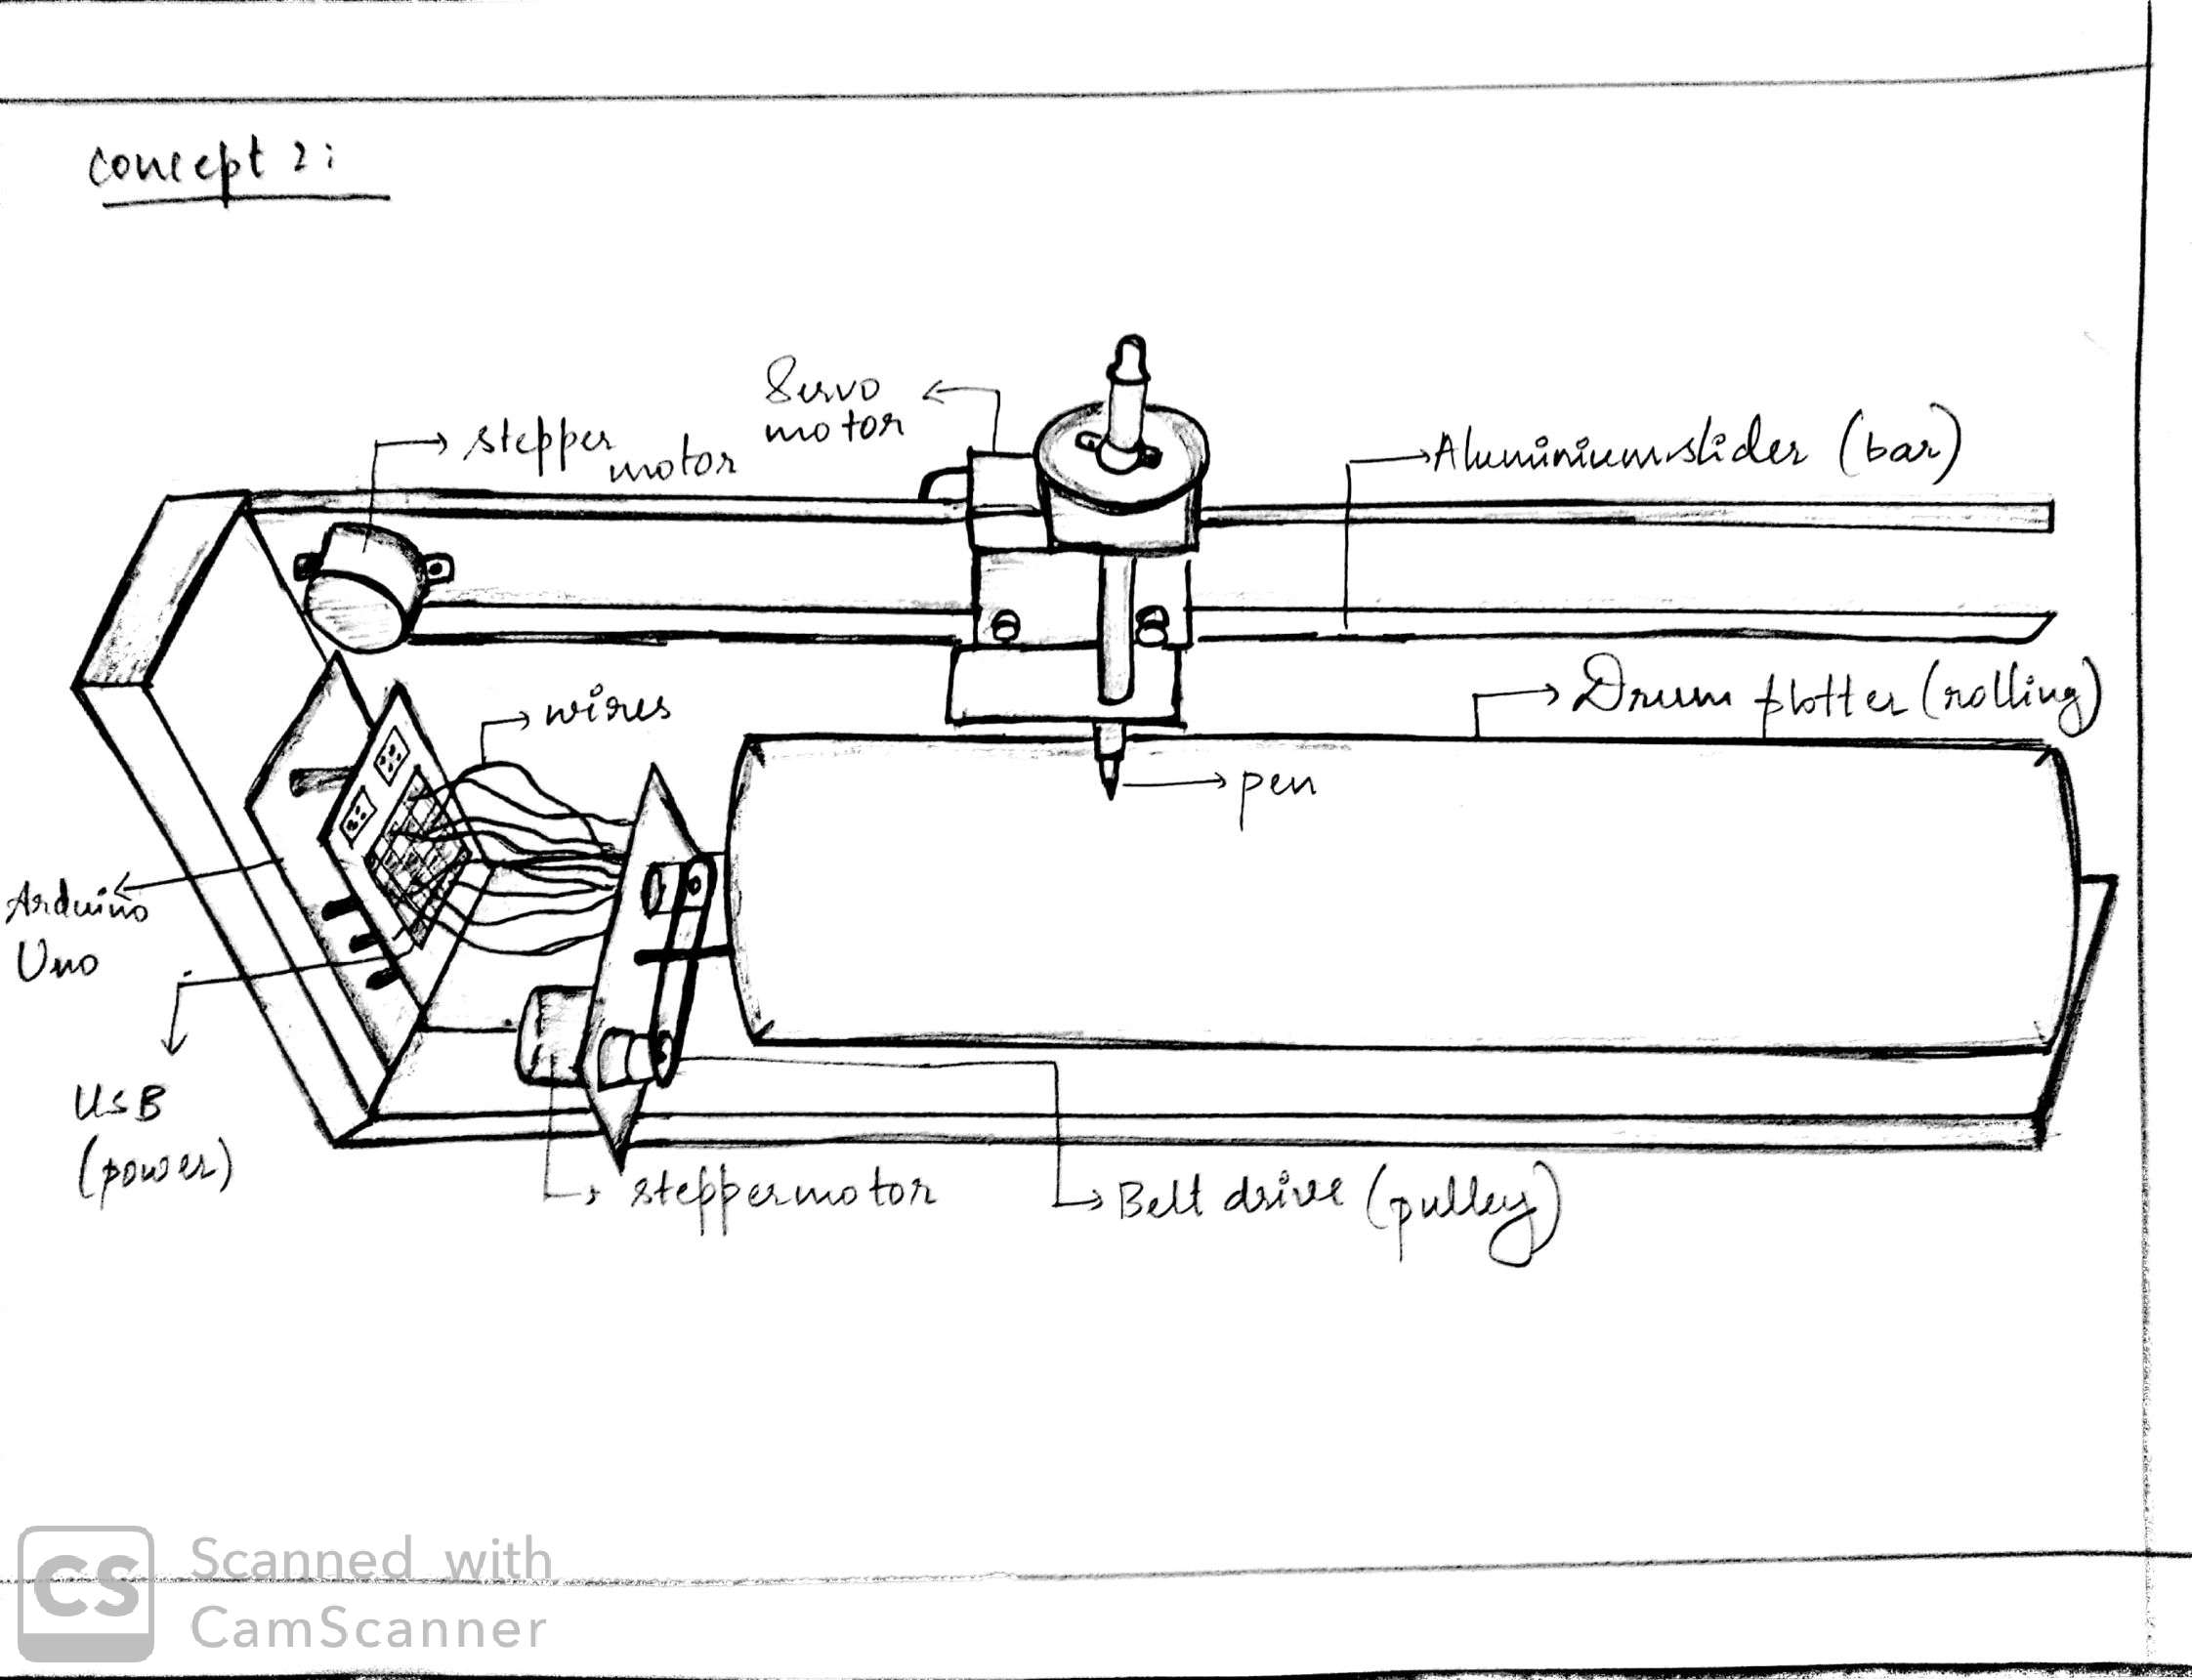 concept 2:
Servo
motor
stepper
motor
Aluminium slider (bar)
wires
Drum plotter (rolling)
pen
Arduino
Uno
USB
(power)
steppermotor
Belt drive (pulley)
CS
Scanned with
CamScanner